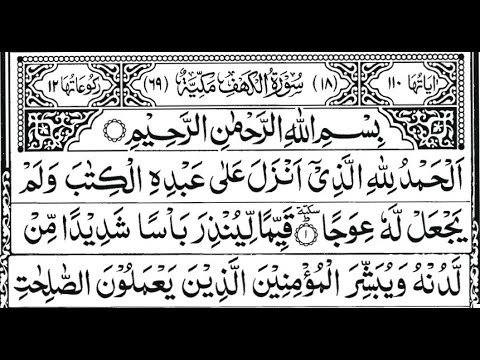 اٰیَاتُهَا ١١٠ (١٨) سُوْرَةُ الْكَهْفِ مَكِّيَّةٌ (٦٩) رُكُوْعَاتُهَا ١٢
بِسْمِ اللّٰهِ الرَّحْمٰنِ الرَّحِيْمِ
اَلْحَمْدُ لِلّٰهِ الَّذِيْۤ اَنْزَلَ عَلٰى عَبْدِهِ الْكِتٰبَ وَلَمْ
يَجْعَلْ لَّهٗ عِوَجًا ؕ سكتة ١ قَيِّمًا لِّيُنْذِرَ بَاْسًا شَدِيْدًا مِّنْ
لَّدُنْهُ وَيُبَشِّرَ الْمُؤْمِنِيْنَ الَّذِيْنَ يَعْمَلُوْنَ الصّٰلِحٰتِ